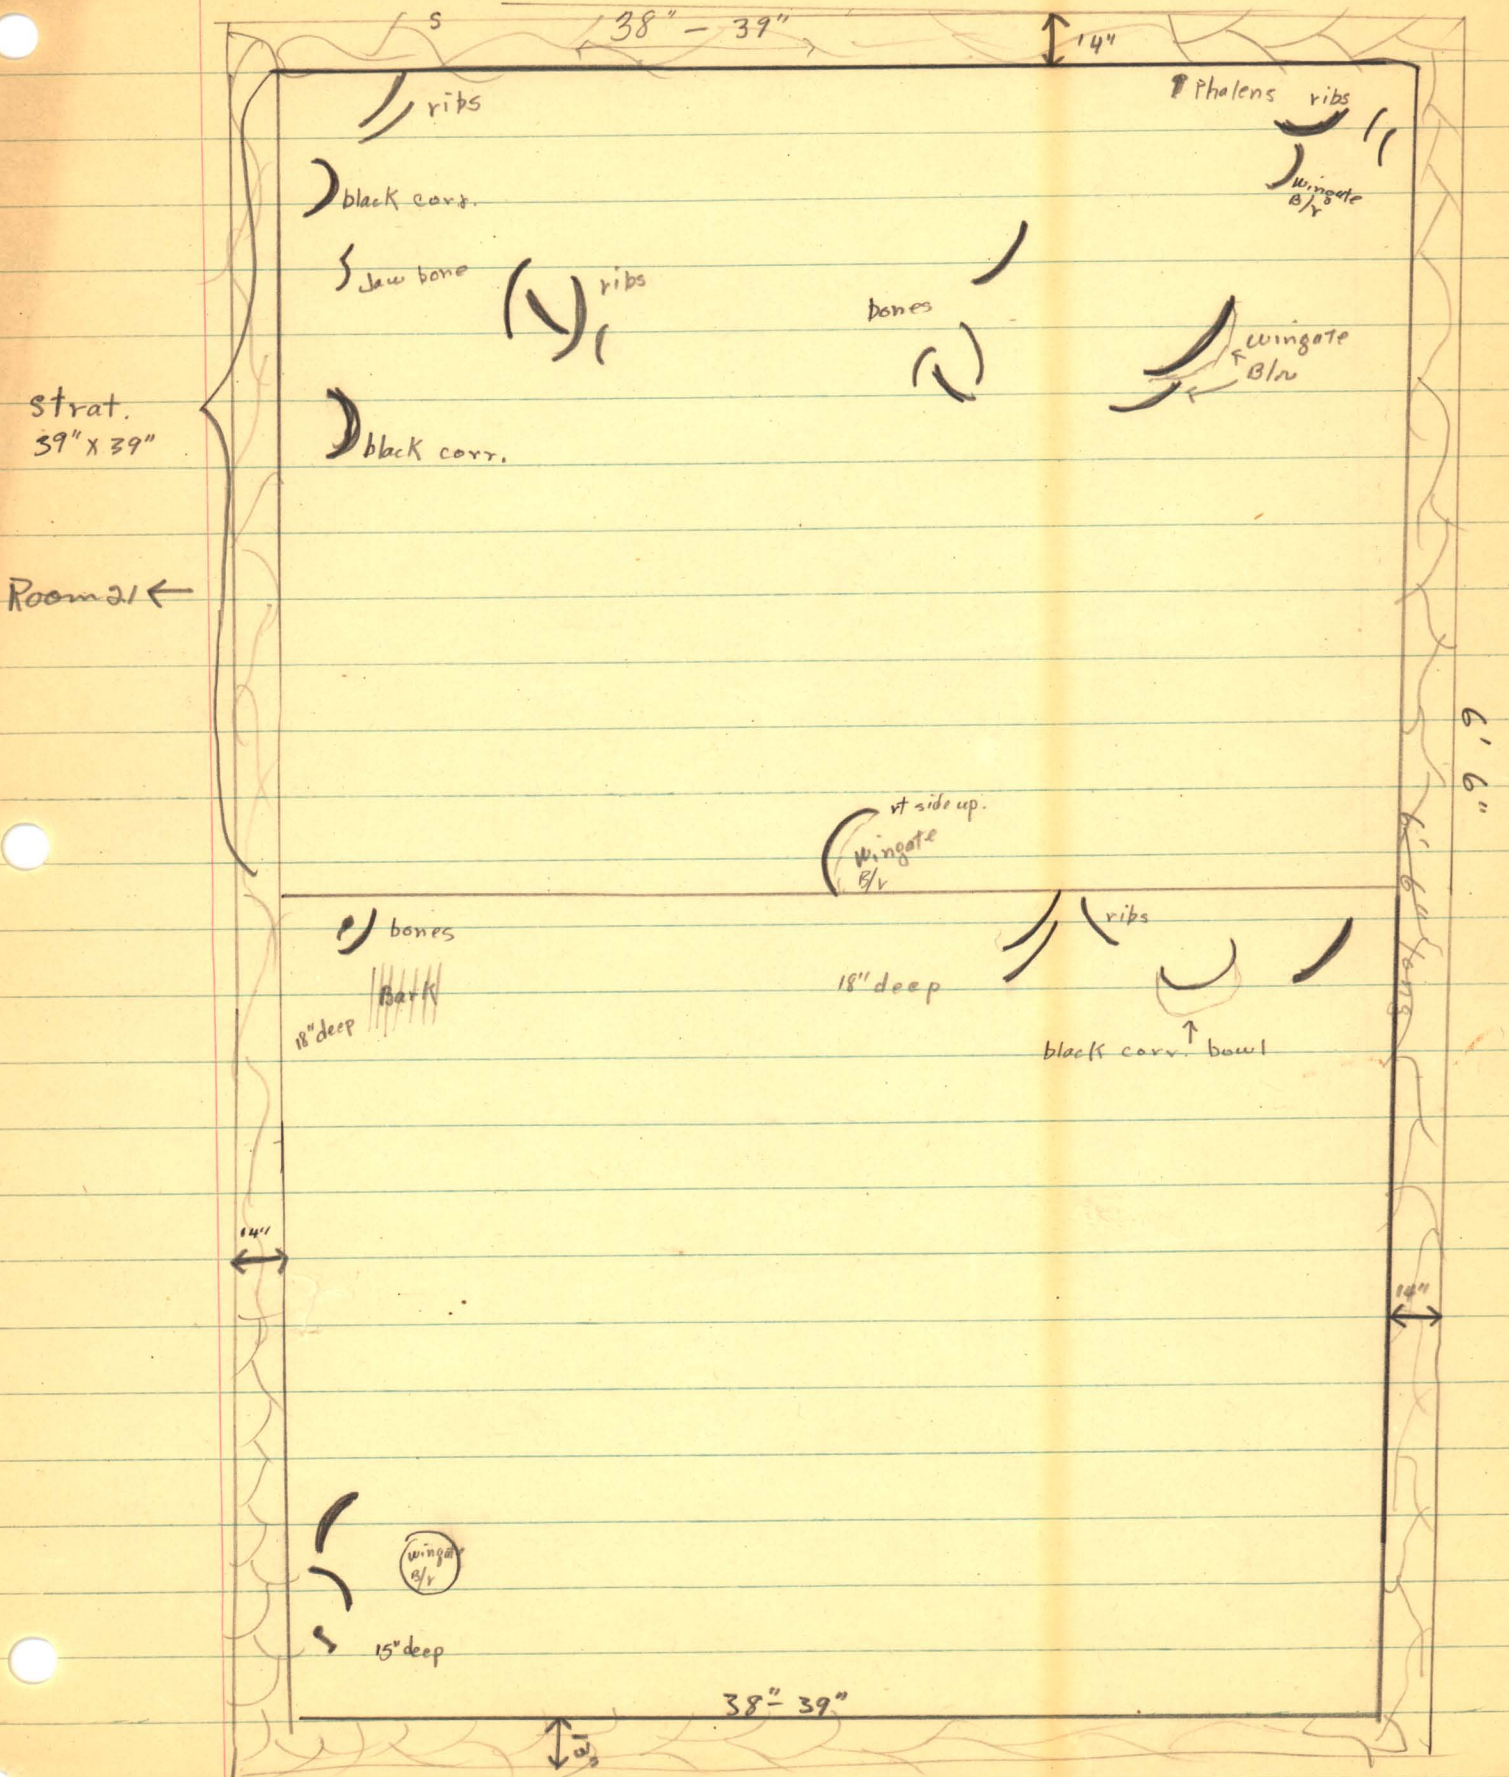 S
38" – 39"
14"
ribs
Phalens ribs
black corr.
wingate
B/r
Jaw bone
ribs
bones
wingate
B/r
strat.
39" X 39"
black corr.
Room 21 ←
6' 6"
rt side up.
wingate
B/r
6' 6" long
bones
ribs
Bark
18" deep
18" deep
black corr. bowl
14"
14"
wingate
B/r
15" deep
38" – 39"